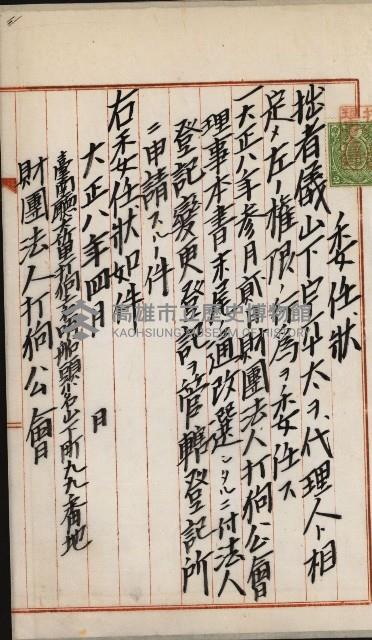 委任狀
拙者儀山下宅斗太ヲ代理人ト相
定メ左ノ權限ノ行為ヲ委任ス
一大正八年參月貳 財團法人打狗公會
理事本書末尾ノ通改選シタルニ付法人
登記變更登記ヲ管轄登記所
ニ申請スルノ件
右委任狀如件
大正八年四月 日
臺南廳 打狗 山下町九九番地
財團法人打狗公會
高雄市立歷史博物館
KAOHSIUNG MUSEUM OF HISTORY